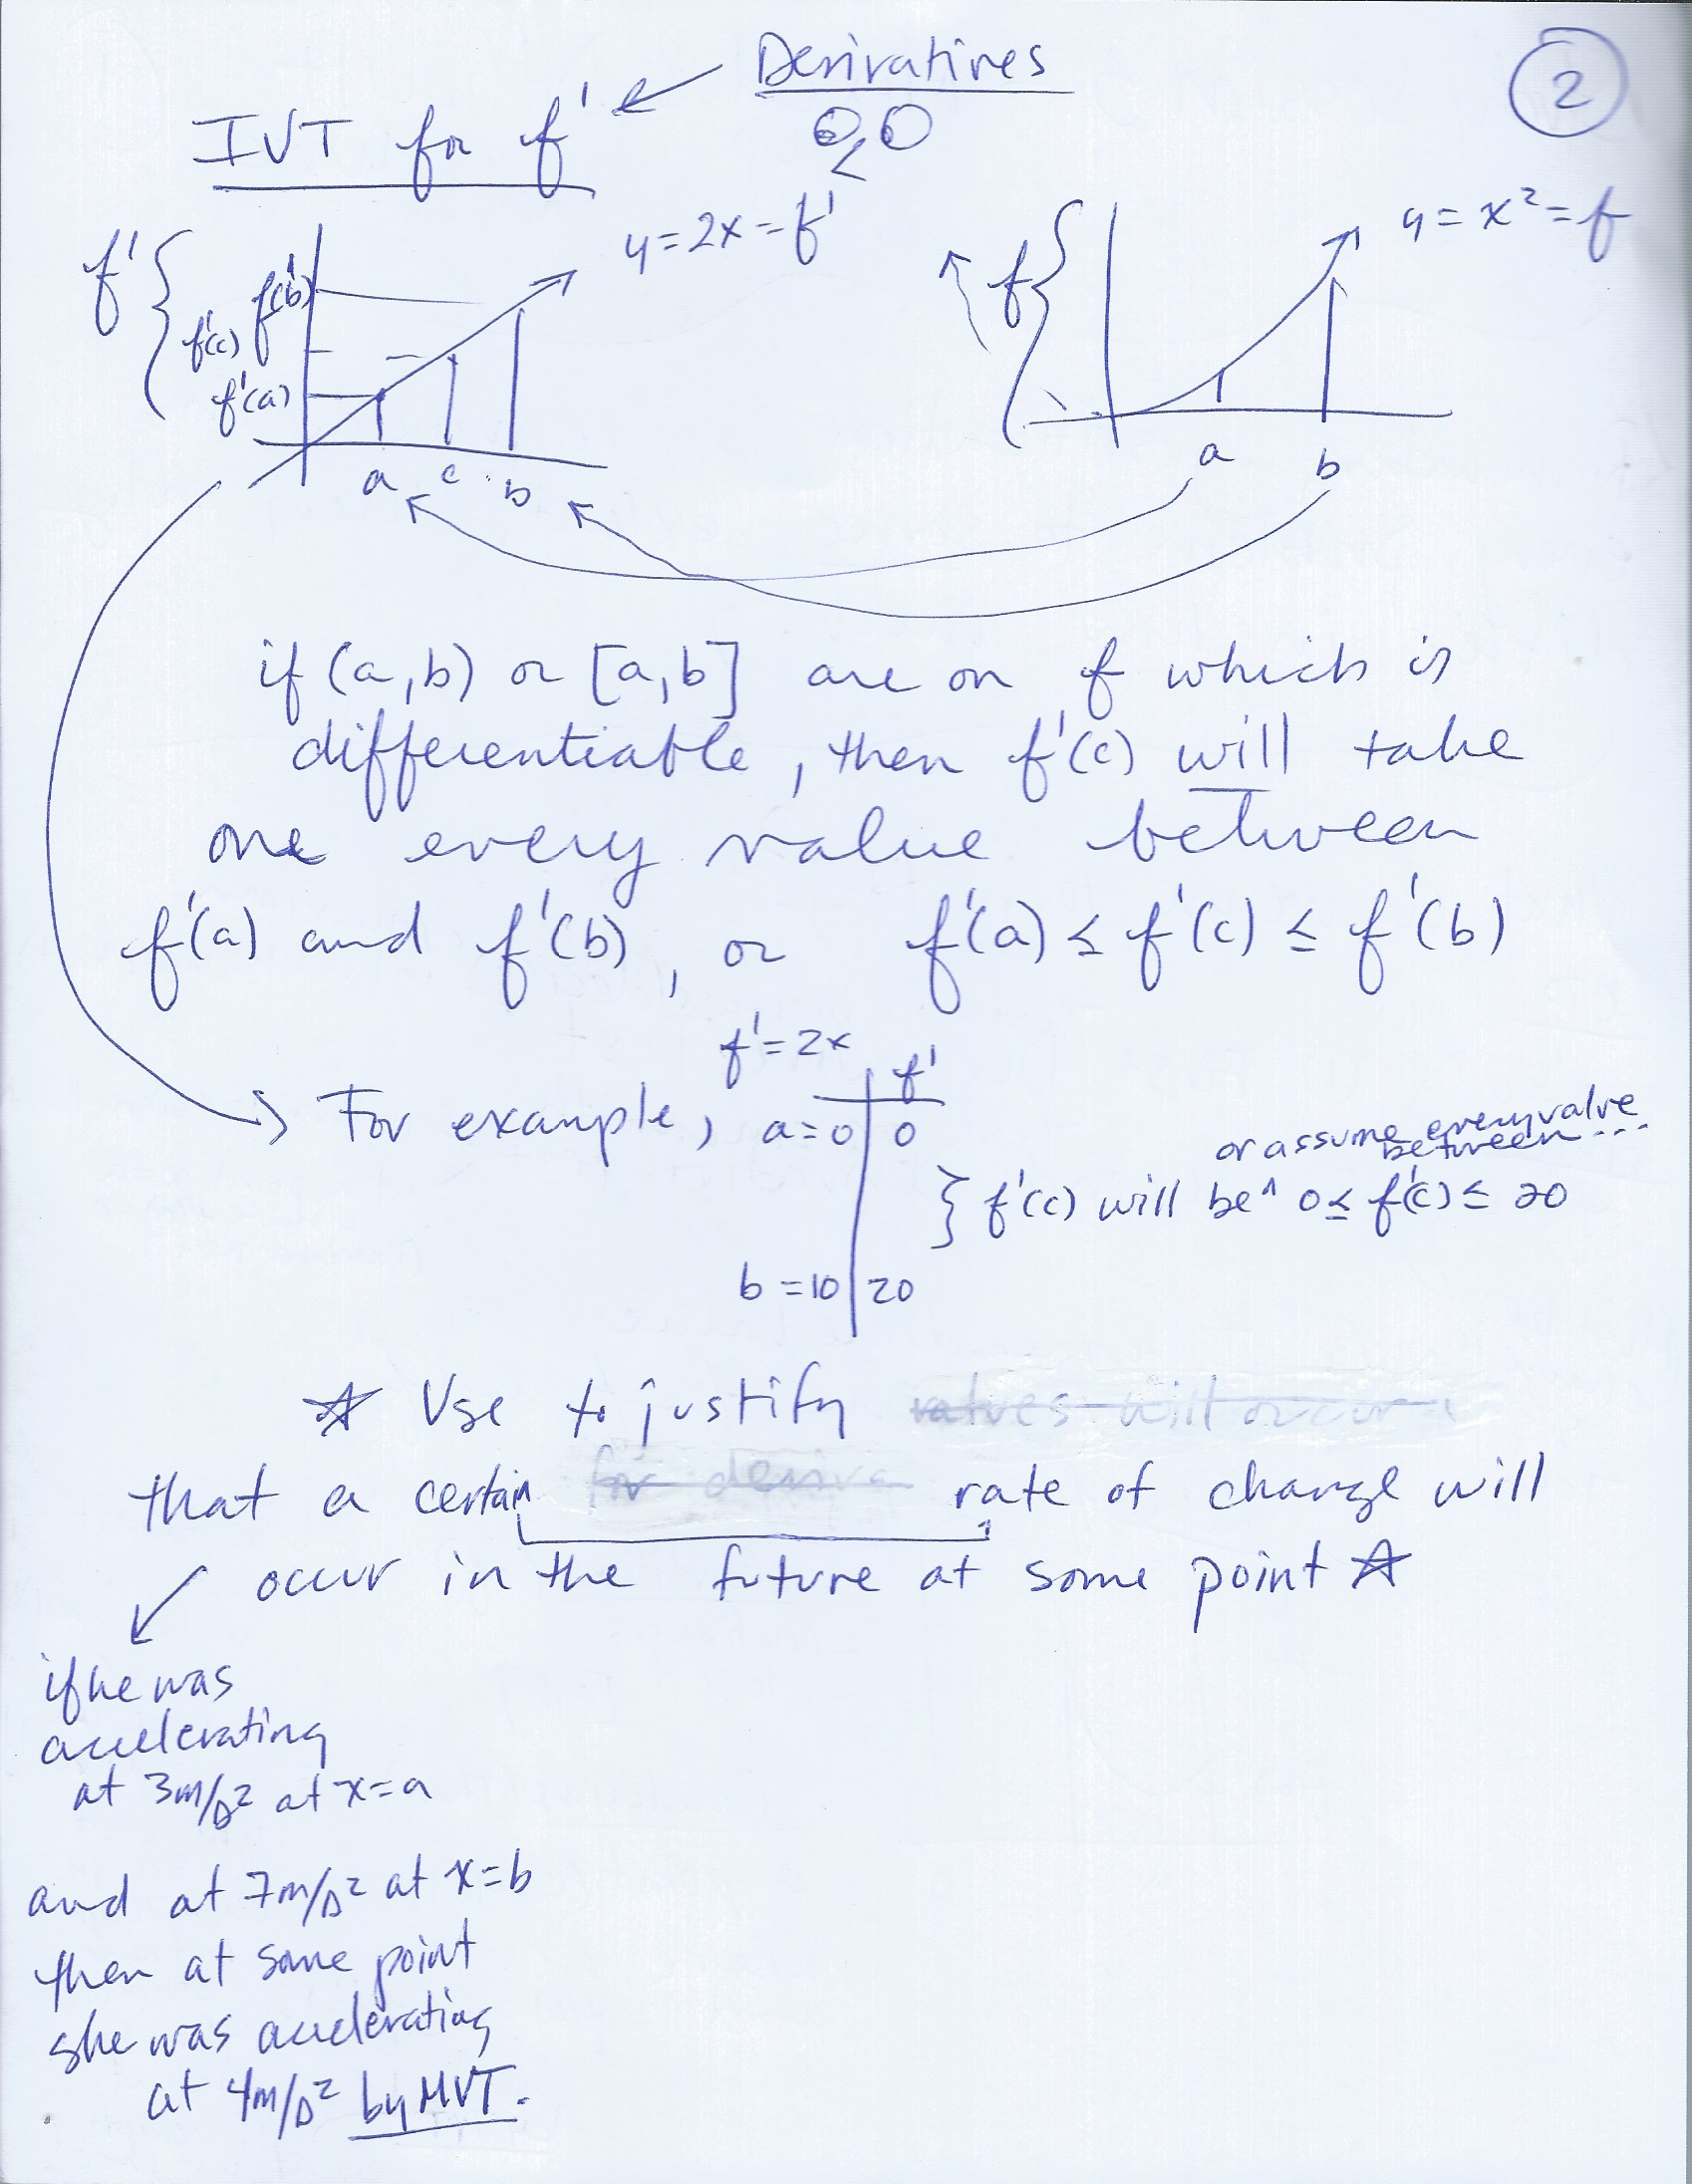 Derivatives
2
IVT for f'
y = 2x = f'
y = x² = f
f'
f'(b)
f'(c)
f'(a)
a c b
f
a
b
if (a,b) or [a,b] are on f which is
differentiable, then f'(c) will take
one every value between
f'(a) and f'(b), or f'(a) ≤ f'(c) ≤ f'(b)
f' = 2x
f'
For example, a=0 0
or assume every value
between...
} f'(c) will be ^ 0 ≤ f'(c) ≤ 20
b = 10 20
☆ Use to justify values will occur
that a certain for deriva rate of change will
occur in the future at some point ☆
if he was
accelerating
at 3m/s² at x=a
and at 7m/s² at x=b
then at some point
she was accelerating
at 4m/s² by MVT.